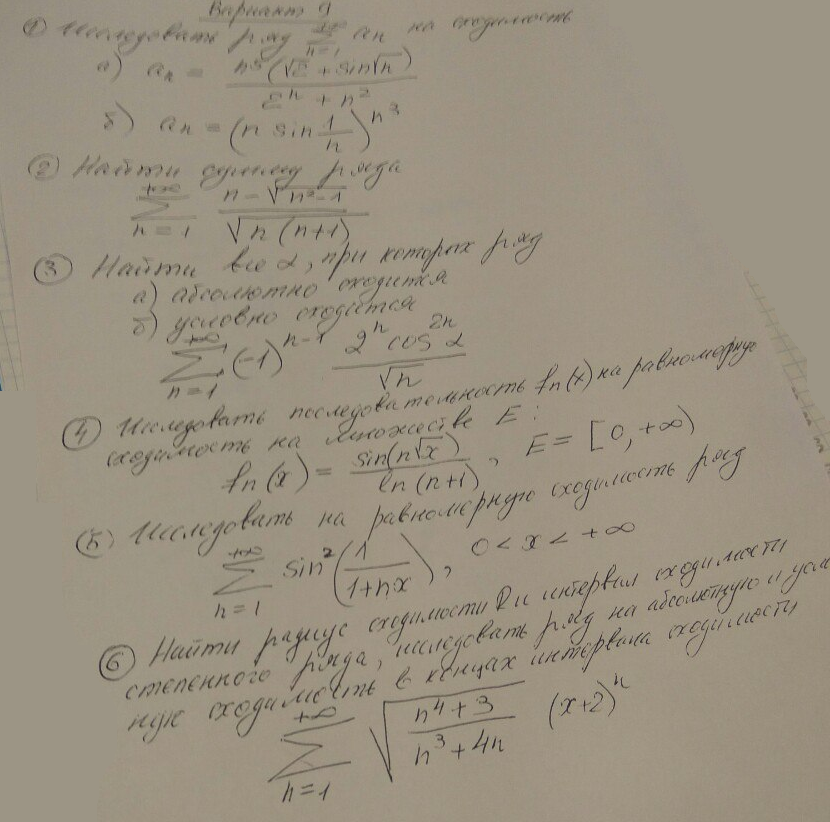 Вариант 9
① Исследовать ряд +∞ ∑ n=1 an на сходимость
а) an = n⁵(√2 + sin√n) / 2ⁿ + n²
б) an = (n sin 1/n)^n³
② Найти сумму ряда
+∞ ∑ n=1 n - √n²-1 / √n(n+1)
③ Найти все α, при которых ряд
а) абсолютно сходится
б) условно сходится
+∞ ∑ n=1 (-1)^n-1 2ⁿ cos^2n α / √n
④ Исследовать последовательность fn(x) на равномерную
сходимость на множестве E:
fn(x) = sin(n√x) / ln(n+1), E = [0, +∞)
⑤ Исследовать на равномерную сходимость ряд
+∞ ∑ n=1 sin²(1 / 1+nx), 0 < x < +∞
⑥ Найти радиус сходимости R и интервал сходимости
степенного ряда, исследовать ряд на абсолютную и усл
ную сходимость в концах интервала сходимости
+∞ ∑ n=1 √n⁴+3 / n³+4n (x+2)ⁿ